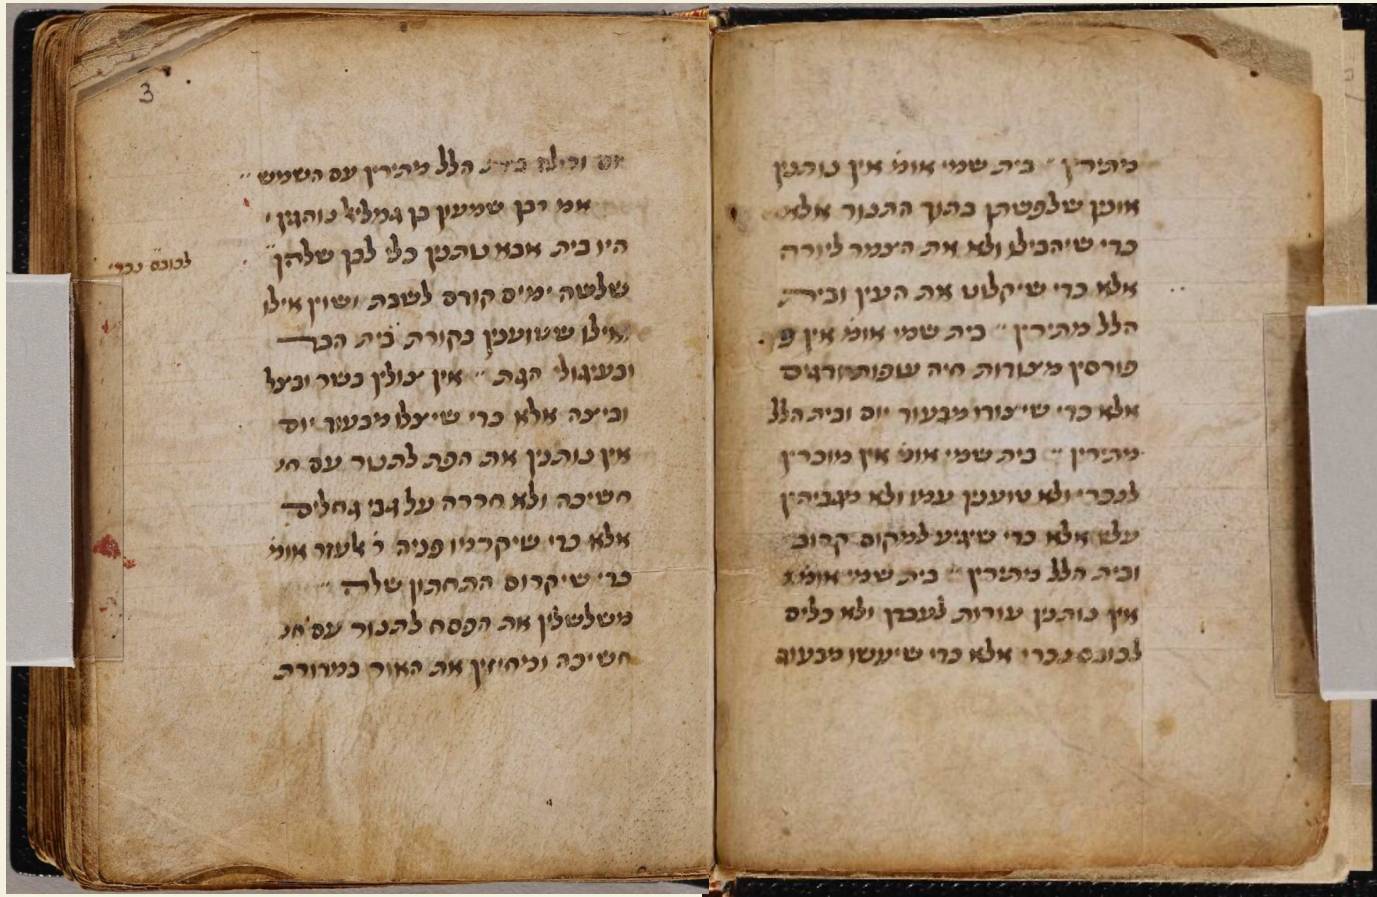 מתירין ״ בית שמי אומ׳ אין נותנין
אונין שלפשתן בתוך התנור אלא
כדי שיהבילו ולא את הצמר ליורה
אלא כדי שיקלוט את העין ובית
הלל מתירין ״ בית שמי אומ׳ אין פ
פורסין מצודות חיה עופות ודגים
אלא כדי שיצודו מבעוד יום ובית הלל
מתירין ״ בית שמי אומ׳ אין מוכרין
לנכרי ולא טוענין עמו ולא מגביהין
עליו אלא כדי שיגיע למקום קרוב
ובית הלל מתירין ״ בית שמי אומ׳
אין נותנין עורות לעבדן ולא כלים
לכובס נכרי אלא כדי שיעשו מבעוד
3
הלל מתירין עם השמש ״
אמ׳ רבן שמעון בן גמליאל נוהגין
היו בית אבא נותנין כלי לבן שלהן ״
לכובס נכרי
שלשה ימים קודם לשבת ושוין אילו
ואילו שטוענין בקורת בית הבד
ובעיגולי הגת ״ אין צולין בשר ובצל
וביצה אלא כדי שיצלו מבעוד יום
אין נותנין את הפת לתנור עם ח
חשיכה ולא חררה על גבי גחלים
אלא כדי שיקרמו פניה ר׳ לעזר אומ׳
כדי שיקרום התחתון שלה ״
משלשלין את הפסח לתנור עם ח
חשיכה ומחיזין את האור במדורת